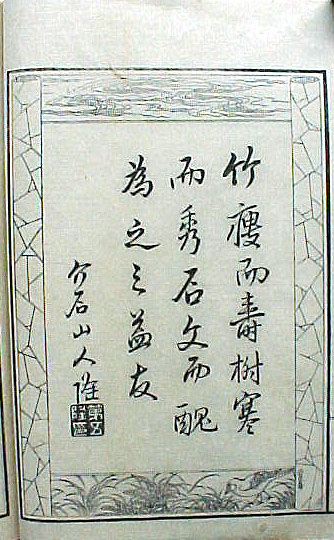 竹瘦而壽樹寒
而秀石文而醜
為之三益友
介石山人隆